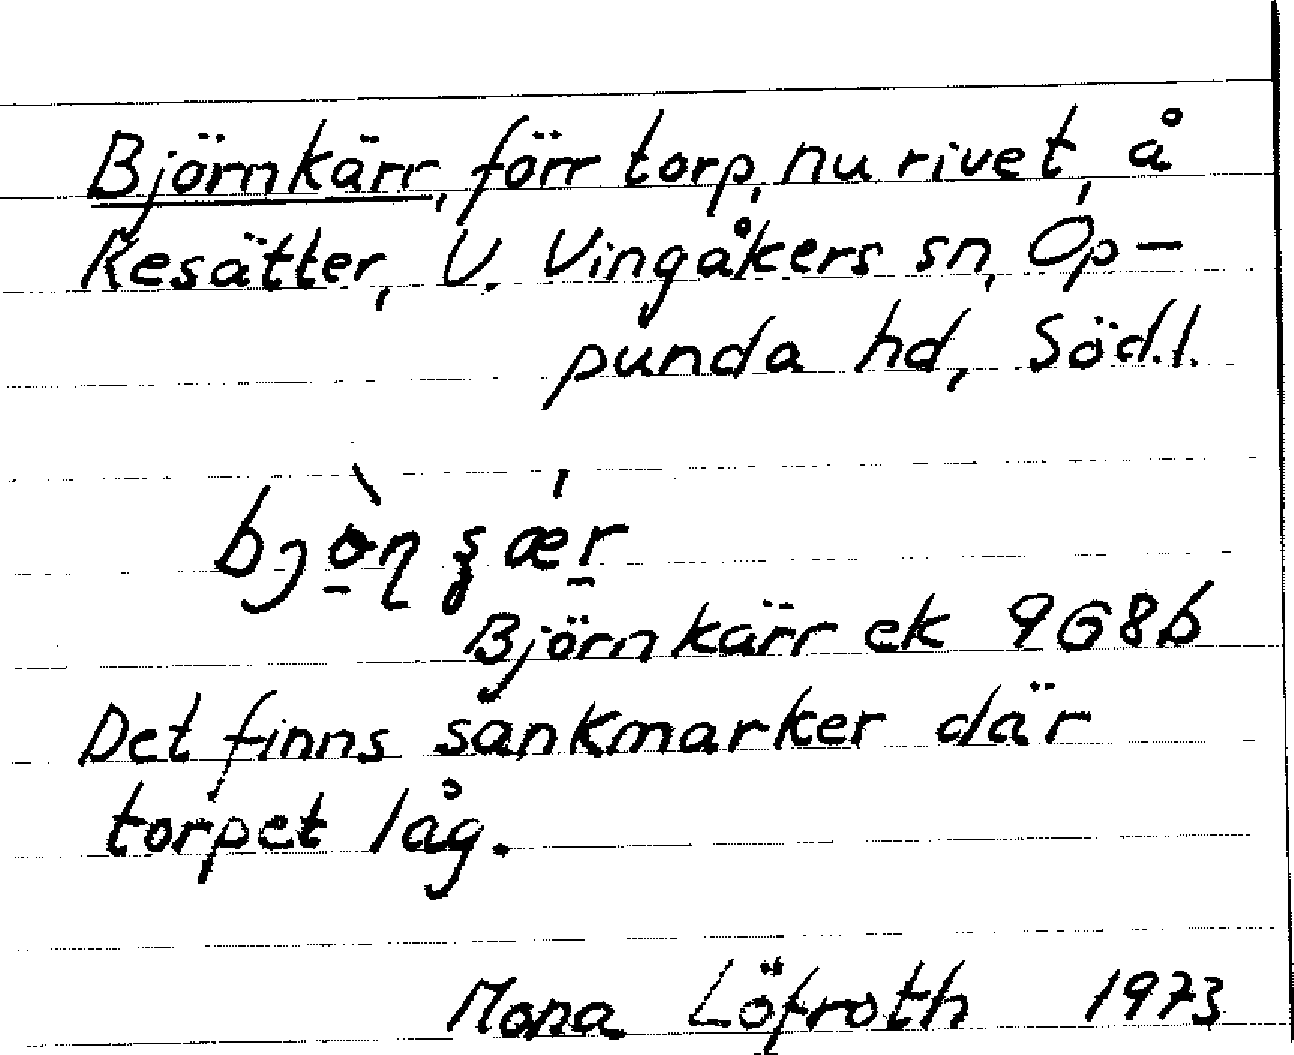 Björnkärr, förr torp, nu rivet, å
Kesätter, V. Vingåkers sn, Op-
punda hd, Söd.l.
Björnkärr ek 9G8b
Det finns sankmarker där
torpet låg.
Mona Löfroth 1973